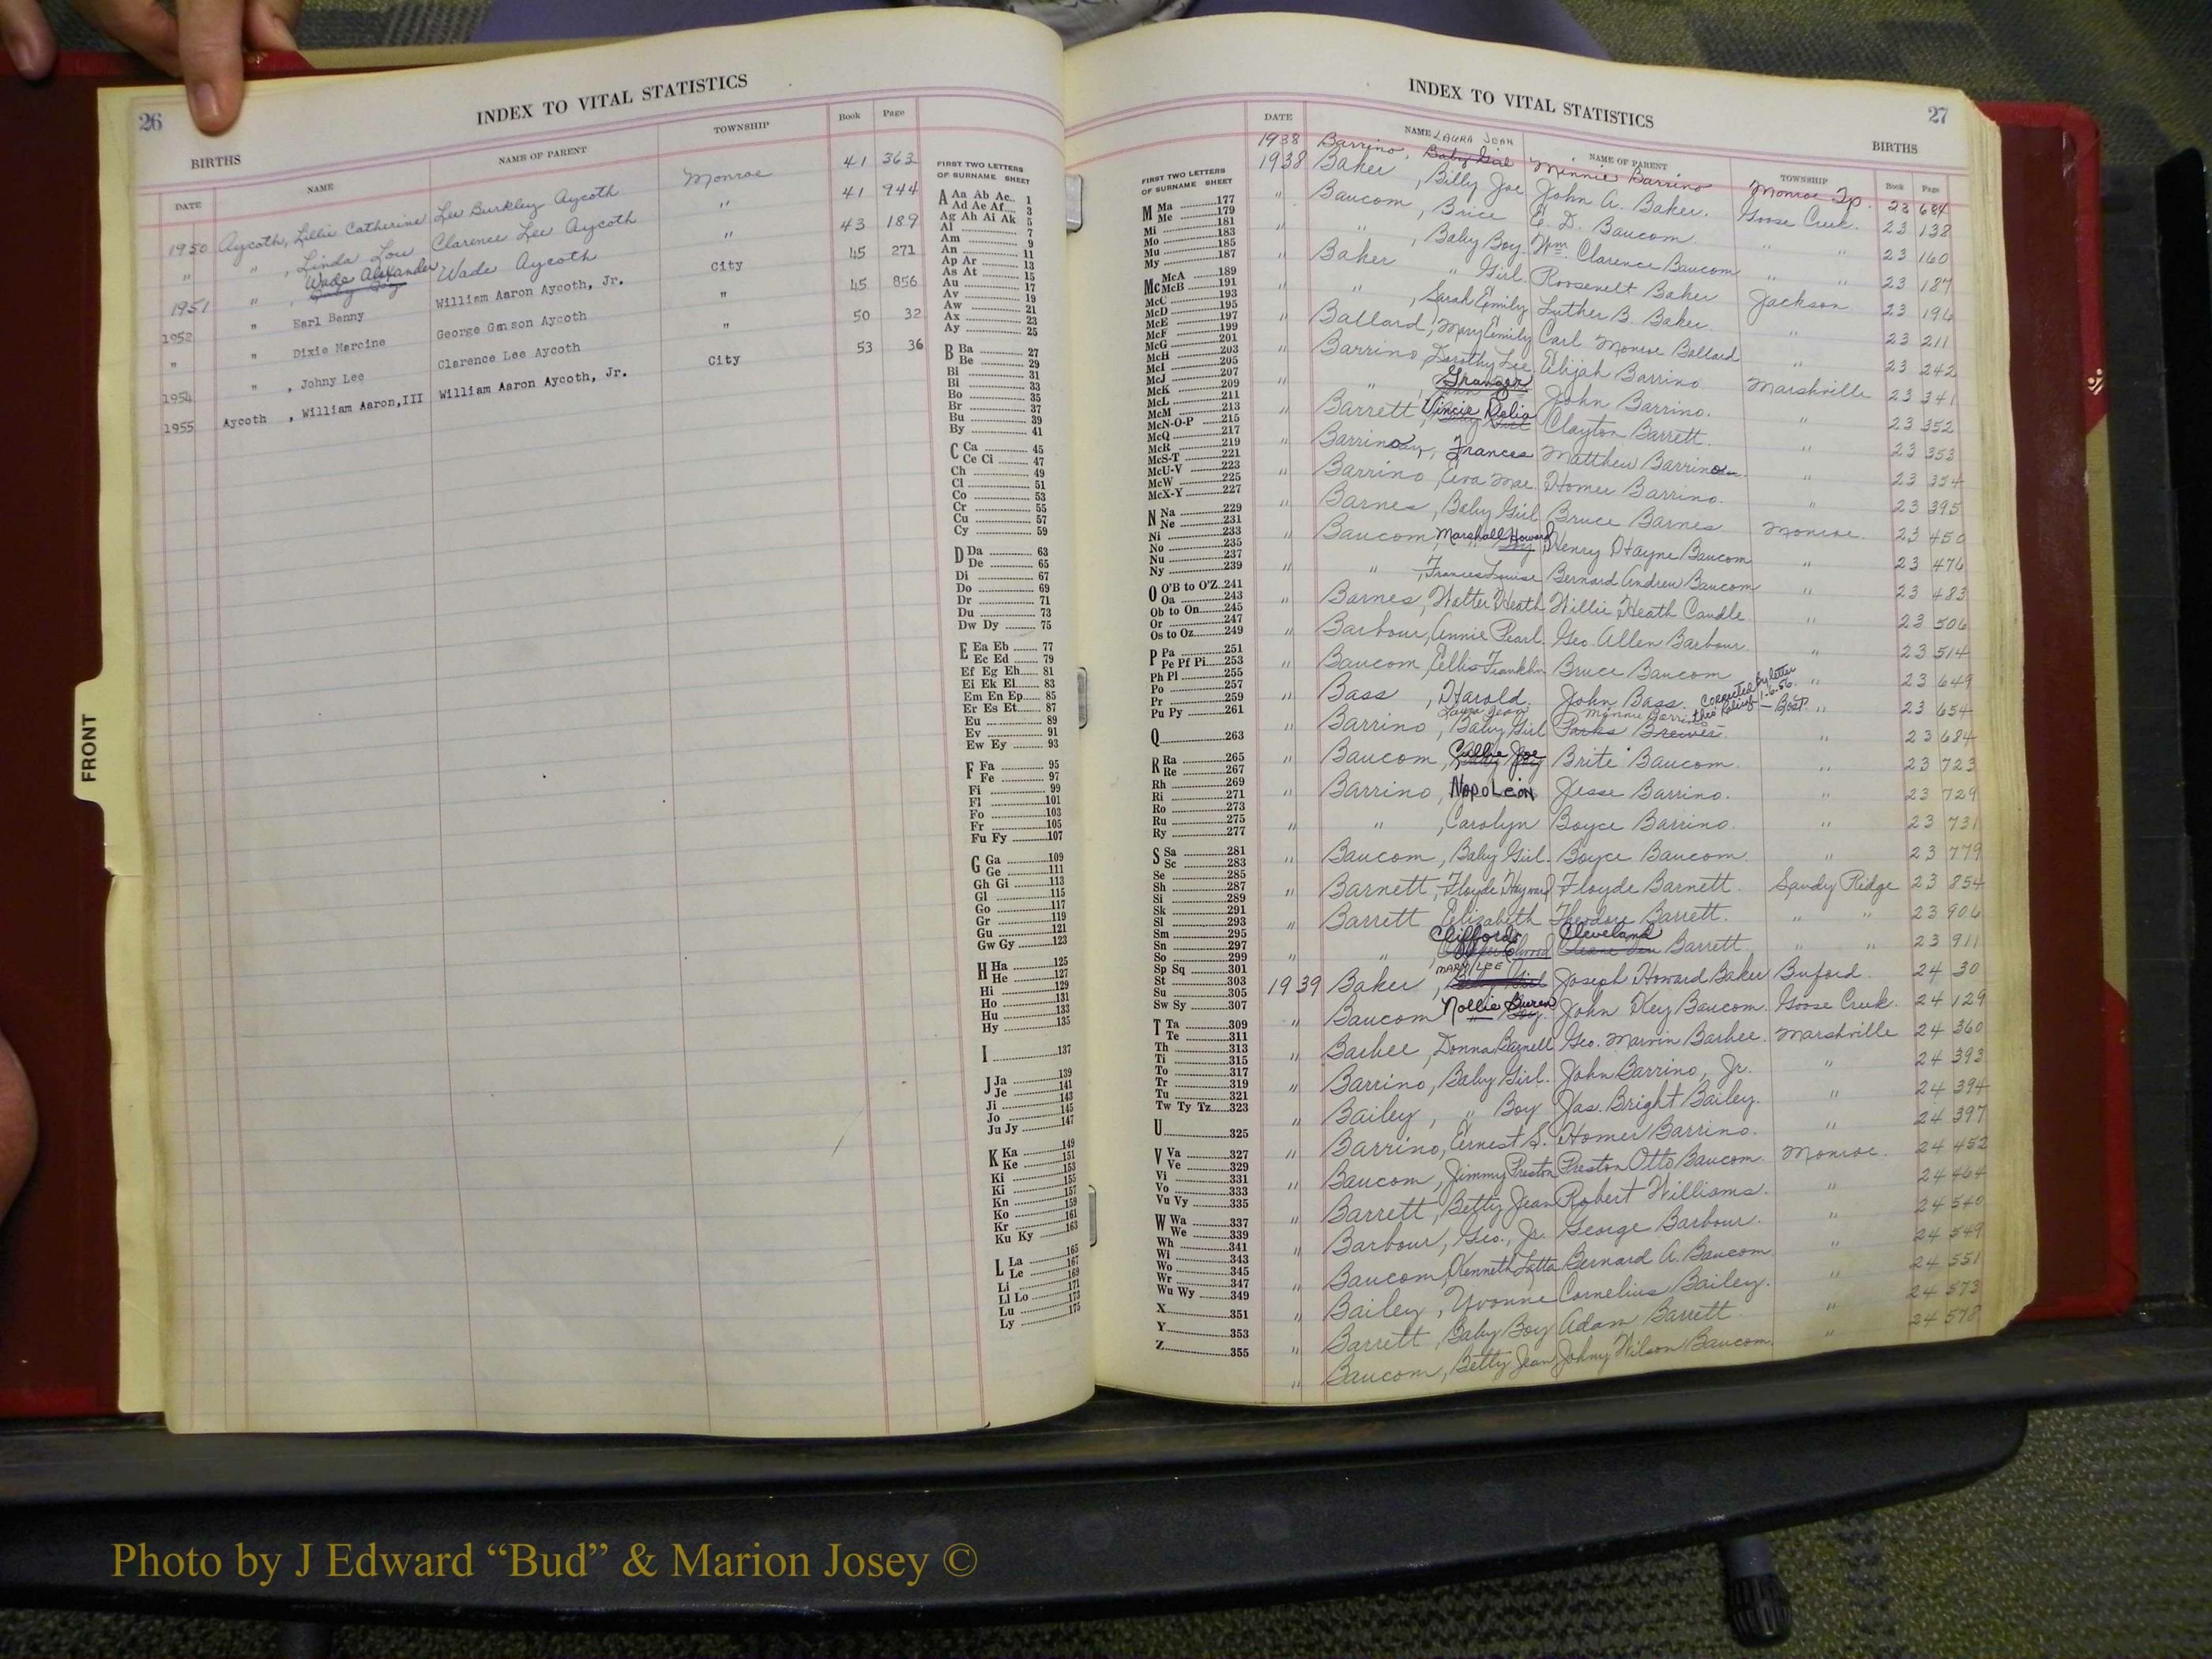 26
INDEX TO VITAL STATISTICS
BIRTHS
DATE NAME NAME OF PARENT TOWNSHIP Book Page
1950 Aycoth, Lillie Catherine Lee Burkley Aycoth Monroe 41 363
" " , Linda Lou Clarence Lee Aycoth " 41 944
1951 " , Wade Alexander Baby Boy Wade Aycoth " 43 189
1952 " Earl Benny William Aaron Aycoth, Jr. City 45 271
" " Dixie Marcine George Ganson Aycoth " 45 856
1954 " , Johny Lee Clarence Lee Aycoth " 50 32
1955 Aycoth , William Aaron,III William Aaron Aycoth, Jr. City 53 36
FRONT
FIRST TWO LETTERS
OF SURNAME SHEET
A Aa Ab Ac 1
Ad Ae Af 3
Ag Ah Ai Ak 5
Al 7
Am 9
An 11
Ap Ar 13
As At 15
Au 17
Av 19
Aw 21
Ax 23
Ay 25
B Ba 27
Be 29
Bi 31
Bl 33
Bo 35
Br 37
Bu 39
By 41
C Ca 45
Ce Ci 47
Ch 49
Cl 51
Co 53
Cr 55
Cu 57
Cy 59
D Da 63
De 65
Di 67
Do 69
Dr 71
Du 73
Dw Dy 75
E Ea Eb 77
Ec Ed 79
Ef Eg Eh 81
Ei Ek El 83
Em En Ep 85
Er Es Et 87
Eu 89
Ev 91
Ew Ey 93
F Fa 95
Fe 97
Fi 99
Fl 101
Fo 103
Fr 105
Fu Fy 107
G Ga 109
Ge 111
Gh Gi 113
Gl 115
Go 117
Gr 119
Gu 121
Gw Gy 123
H Ha 125
He 127
Hi 129
Ho 131
Hu 133
Hy 135
I 137
J Ja 139
Je 141
Ji 143
Jo 145
Ju Jy 147
K Ka 149
Ke 151
Ki 153
Kl 155
Kn 157
Ko 159
Kr 161
Ku Ky 163
L La 165
Le 167
Li 169
Ll Lo 171
Lu 173
Ly 175
INDEX TO VITAL STATISTICS
27
BIRTHS
DATE NAME NAME OF PARENT TOWNSHIP Book Page
FIRST TWO LETTERS
OF SURNAME SHEET
M Ma 177
Me 179
Mi 181
Mo 183
Mu 185
My 187
Mc McA 189
McB 191
McC 193
McD 195
McE 197
McF 199
McG 201
McH 203
McI 205
McJ 207
McK 209
McL 211
McM 213
McN-O-P 215
McQ 217
McR 219
McS-T 221
McU-V 223
McW 225
McX-Y 227
N Na 229
Ne 231
Ni 233
No 235
Nu 237
Ny 239
O O'B to O'Z 241
Oa 243
Ob to On 245
Or 247
Os to Oz 249
P Pa 251
Pe Pf Pi 253
Ph Pl 255
Po 257
Pr 259
Pu Py 261
Q 263
R Ra 265
Re 267
Rh 269
Ri 271
Ro 273
Ru 275
Ry 277
S Sa 281
Sc 283
Se 285
Sh 287
Si 289
Sk 291
Sl 293
Sm 295
Sn 297
So 299
Sp Sq 301
St 303
Su 305
Sw Sy 307
T Ta 309
Te 311
Th 313
Ti 315
To 317
Tr 319
Tu 321
Tw Ty Tz 323
U 325
V Va 327
Ve 329
Vi 331
Vo 333
Vu Vy 335
W Wa 337
We 339
Wh 341
Wi 343
Wo 345
Wr 347
Wu Wy 349
X 351
Y 353
Z 355
LAURA JEAN
1938 Barrino, Baby Girl Minnie Barrino Monroe Tp. 23 684
1938 Baker , Billy Joe John A. Baker. Goose Creek. 23 138
" Baucom , Brice E. D. Baucom " " 23 160
" " , Baby Boy. Wm. Clarence Baucom " " 23 187
" Baker " Girl. Roosevelt Baker Jackson 23 196
" " , Sarah Emily Luther B. Baker. " 23 211
" Ballard, Mary Emily Carl Monroe Ballard " 23 242
" Barrino Dorothy Lee Elijah Barrino Marshville 23 341
" " , Granger John Barrino. " 23 352
" Barrett Vincie Delia Baby Girl Clayton Barrett. " 23 353
" Barrino, Frances Matthew Barrino " 23 354
" Barrino, Eva Mae. Homer Barrino. " 23 395
" Barnes, Baby Girl Bruce Barnes Monroe. 23 450
" Baucom, Marshall Howard Boy Henry Wayne Baucom " 23 476
" " , Frances Louise Bernard Andrew Baucom " 23 483
" Barnes, Walter Heath Willie Heath Caudle " 23 506
" Barbour, Annie Pearl. Geo. Allen Barbour. " 23 514
" Baucom, Ellis Franklin Bruce Baucom " 23 649
" Bass , Harold. John Bass. " 23 654
Corrected by letter
1-6-56
Laura Jean Minnie Barrino
" Barrino , Baby Girl Parks Brewer. " 23 684
" Baucom, Callie Joe Brite Baucom. " 23 723
" Barrino, Napoleon Jesse Barrino. " 23 729
" " , Carolyn Boyce Barrino. " 23 731
" Baucom, Baby Girl. Boyce Baucom. " 23 779
" Barnett, Floyde Hayward Floyde Barnett. Sandy Ridge 23 854
" Barrett Elizabeth Theodore Barrett. " " 23 906
Clifford Cleveland
" " , Barrett " " 23 911
MARY LEE
1939 Baker , Baby Girl Joseph Howard Baker Buford. 24 30
" Baucom Nollie Buren Boy. John Key Baucom. Goose Creek. 24 129
" Barbee, Donna Barnell Geo. Marvin Barbee. Marshville 24 360
" Barrino, Baby Girl. John Barrino, Jr. " 24 393
" Bailey, " Boy Jas. Bright Bailey. " 24 394
" Barrino, Ernest S. Homer Barrino. " 24 397
" Baucom, Jimmy Preston Preston Otto Baucom Monroe. 24 452
" Barrett, Betty Jean Robert Williams. " 24 464
" Barbour, Geo., Jr. George Barbour. " 24 540
" Baucom, Kenneth Latta Bernard A. Baucom " 24 549
" Bailey, Yvonne Cornelius Bailey. " 24 551
" Barrett, Baby Boy Adam Barrett " 24 573
" Baucom, Betty Jean Johny Wilson Baucom. " 24 578
Photo by J Edward “Bud” & Marion Josey ©